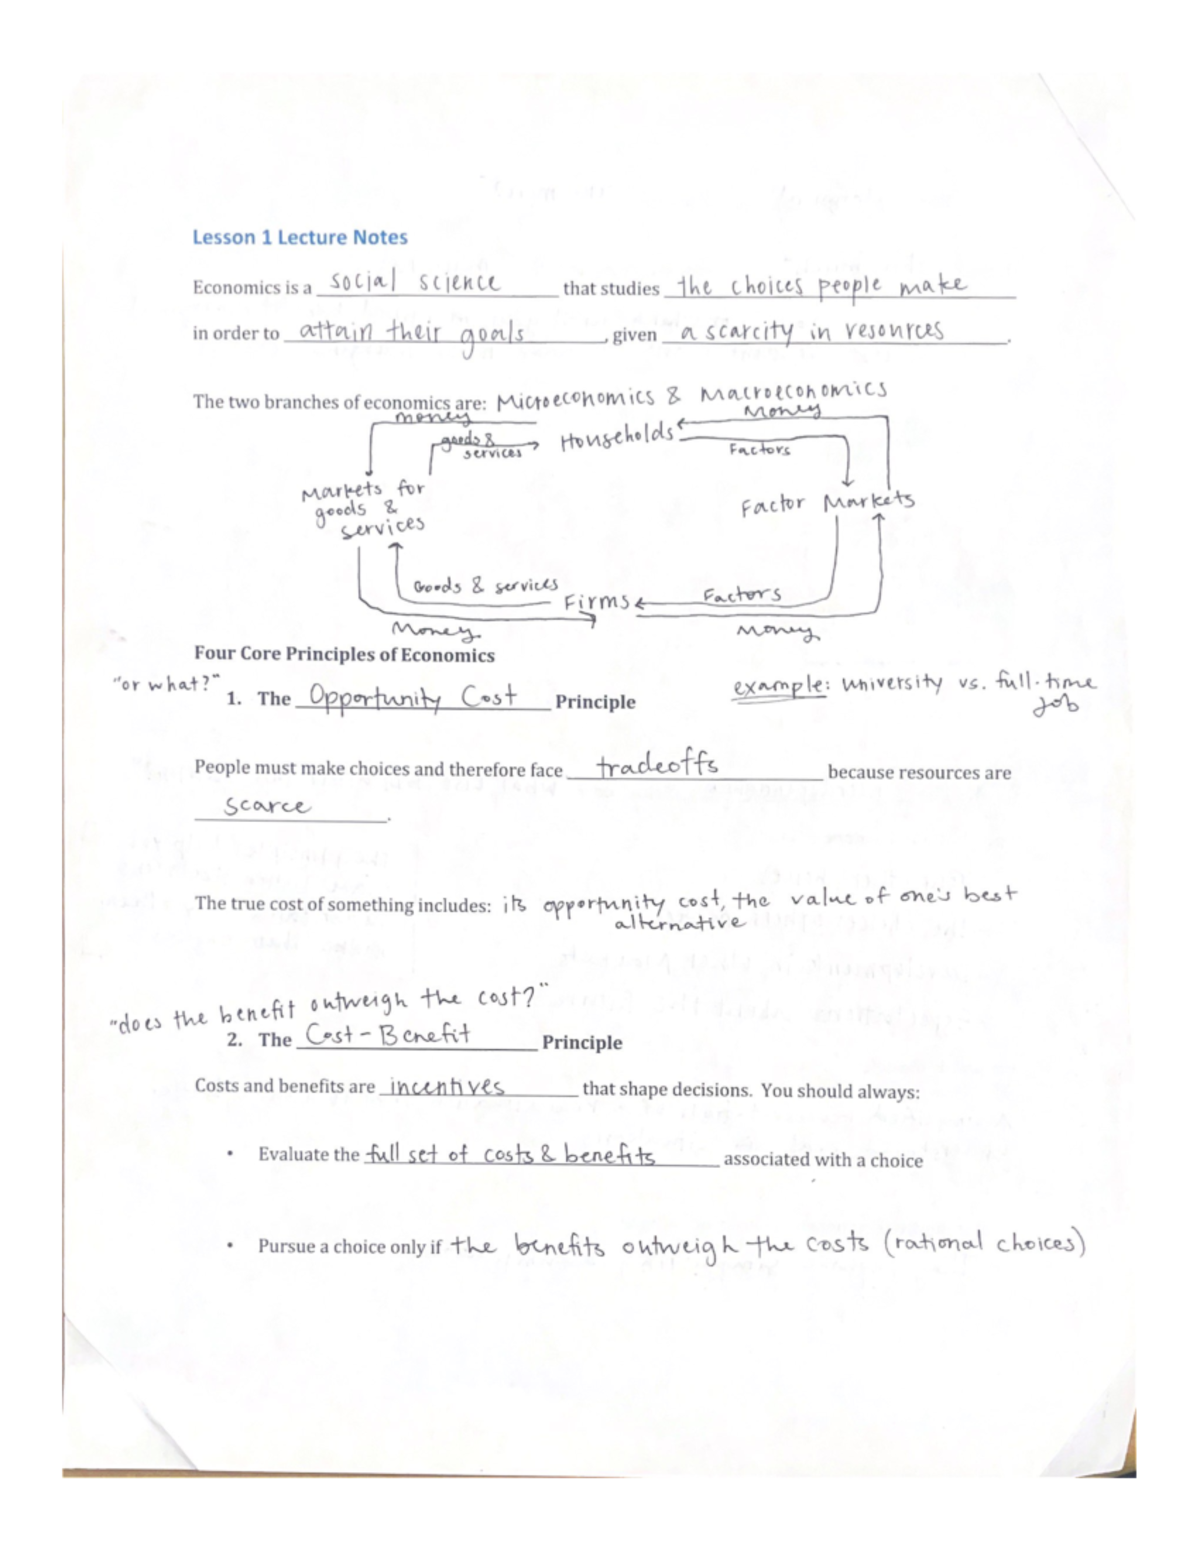 Lesson 1 Lecture Notes
Economics is a social science that studies the choices people make
in order to attain their goals, given a scarcity in resources.
The two branches of economics are: Microeconomics & Macroeconomics
money
Money
goods &
services
Households
Factors
Markets for
goods &
services
Factor Markets
Goods & services
Firms
Factors
Money
Money
Four Core Principles of Economics
"or what?"
1. The Opportunity Cost Principle
example: university vs. full-time
job
People must make choices and therefore face tradeoffs because resources are
scarce.
The true cost of something includes: its opportunity cost, the value of one's best
alternative
"does the benefit outweigh the cost?"
2. The Cost-Benefit Principle
Costs and benefits are incentives that shape decisions. You should always:
• Evaluate the full set of costs & benefits associated with a choice
• Pursue a choice only if the benefits outweigh the costs (rational choices)